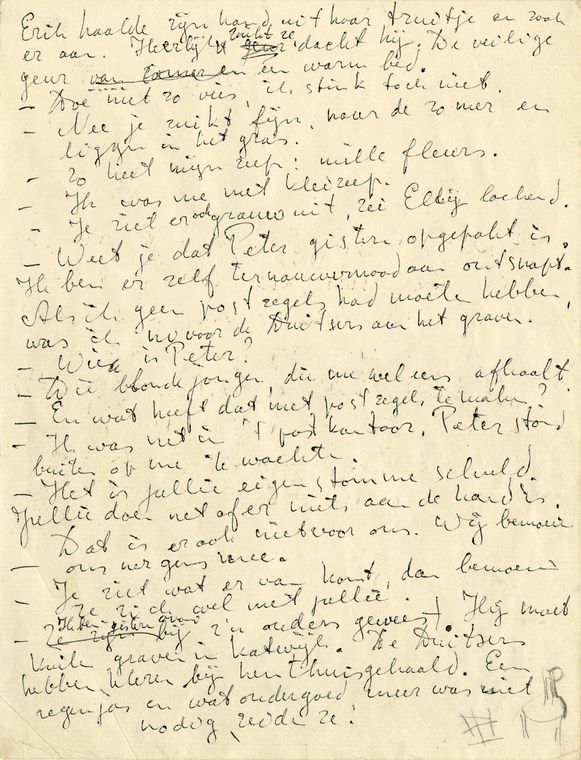 Erik haalde zijn hand uit haar truitje en rook
er aan. Heerlijk ruikt ze dacht hij. De veilige
geur van zomer en en warm bed.
- Doe niet zo vies, ik stink toch niet.
- Nee je ruikt fijn, naar de zomer en
liggen in het gras.
- Zo heet mijn zeep: mille fleurs.
- Ik was me met kleizeep.
- Je ziet er ook grauw uit, zei Elly lachend.
- Weet je dat Peter gisteren opgepakt is.
Ik ben er zelf ternauwernood aan ontsnapt.
Als ik geen postzegels had moeten hebben,
was ik nu voor de Duitsers aan het graven.
- Wie is Peter?
- Die blonde jongen, die me wel eens afhaalt.
- En wat heeft dat met postzegels te maken?
- Ik was net in 't postkantoor. Peter stond
buiten op me te wachten.
- Het is jullie eigen stomme schuld.
Jullie doen net of er niets aan de hand is.
- Dat is er ook niet voor ons. Wij bemoeien
ons nergens mee.
- Je ziet wat er van komt, dan bemoeien
ze zich wel met jullie.
- Ik ben gisteren bij z'n ouders geweest. Hij moet
kuilen graven in Katwijk. De Duitsers
hebben kleren bij hen thuis gehaald. Een
regenjas en wat ondergoed meer was niet
nodig zeiden ze.